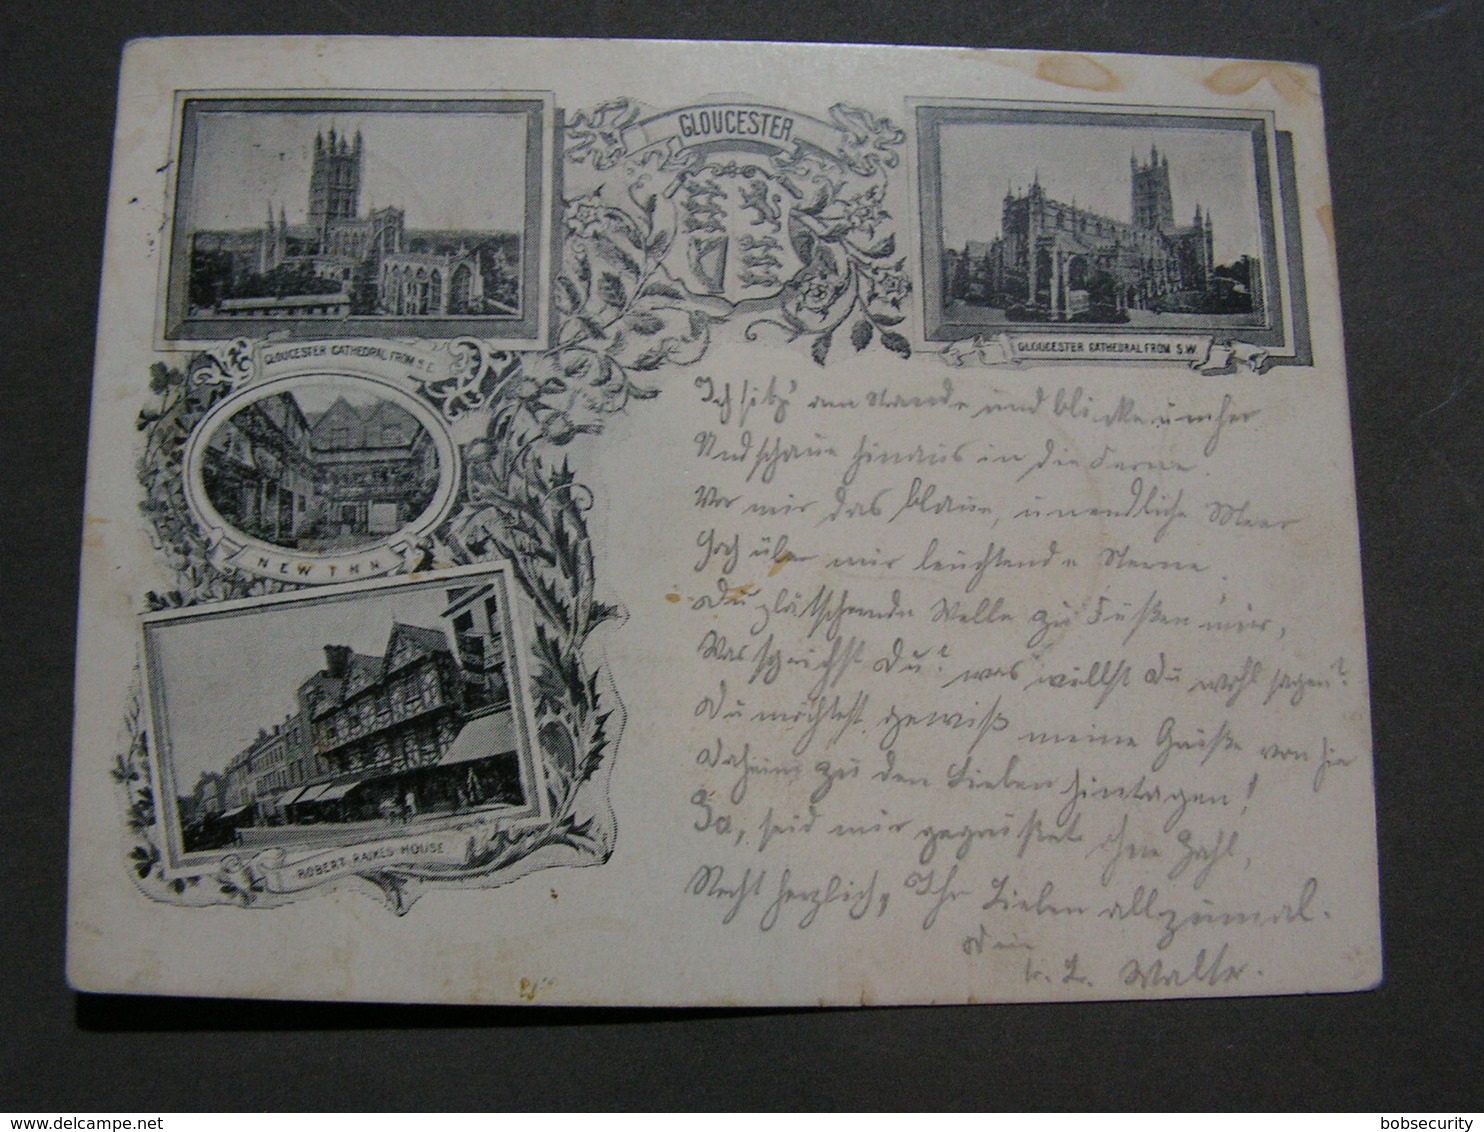 GLOUCESTER
GLOUCESTER CATHEDRAL FROM S.E.
GLOUCESTER CATHEDRAL FROM S.W.
NEW INN
ROBERT RAIKES HOUSE
Ich sitz' am Strande und blicke umher
Und schaue hinaus in die Ferne.
Vor mir das blaue, unendliche Meer
Hoch über mir leuchtende Sterne.
Du plätschernde Welle zu Füßen mir,
Was sprichst Du? was willst Du wohl sagen?
Du möchtest gewiß meine Grüße von hier
Daheim zu den Lieben hintragen!
Ja, seid mir gegrüßt ohne Zahl,
Recht herzlich, Ihr Lieben allzumal.
Dein
Walter.
bobsecurity